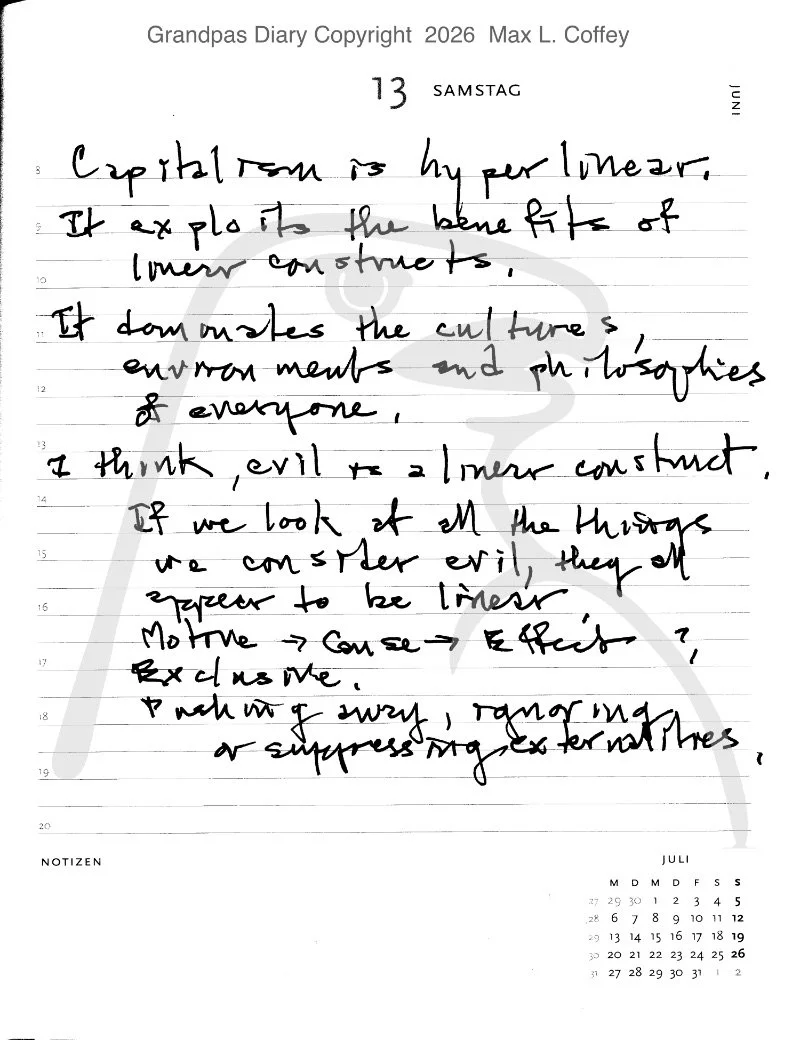 Grandpas Diary Copyright 2026 Max L. Coffey
13 SAMSTAG
JUNI
8 Capitalism is hyper linear.
9 It exploits the benefits of
linear constructs.
10
11 It dominates the cultures,
environments and philosophies
12 of everyone.
13 I think, evil is a linear construct.
14 If we look at all the things
15 we consider evil, they all
appear to be linear.
16 Motive → Cause → Effect ?,
17 Exclusive.
18 Pushing away, ignoring
or suppressing externalities.
19
20
NOTIZEN
JULI
M D M D F S S
27 29 30 1 2 3 4 5
28 6 7 8 9 10 11 12
29 13 14 15 16 17 18 19
30 20 21 22 23 24 25 26
31 27 28 29 30 31 1 2